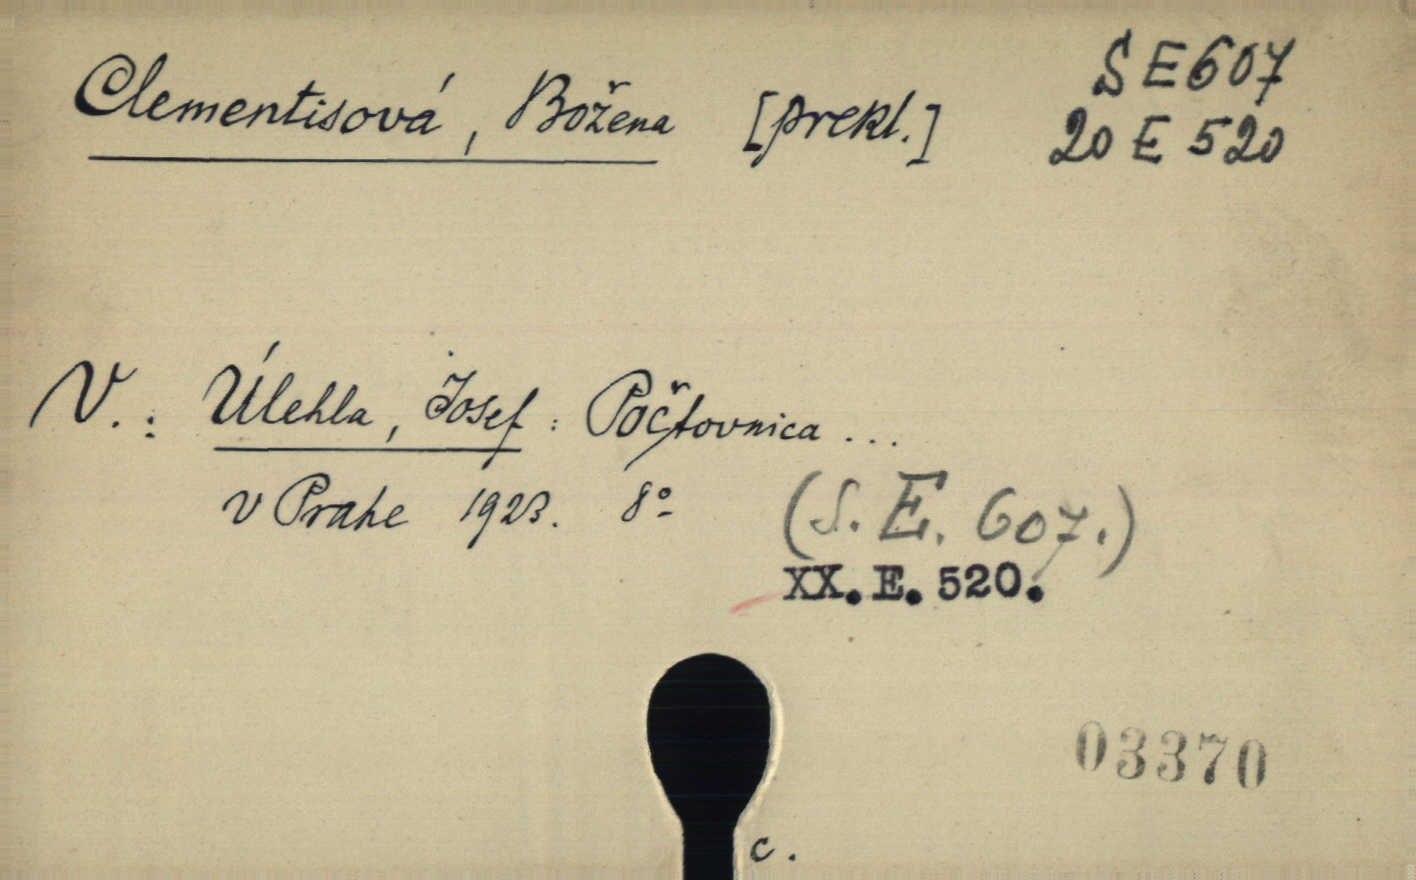 Clementisová, Božena [prekl.]
SE607
20 E 520
V.: Úlehla, Josef: Počtovnica ...
v Prahe 1923. 8º
(S. E. 607.)
XX. E. 520.
03370
c.